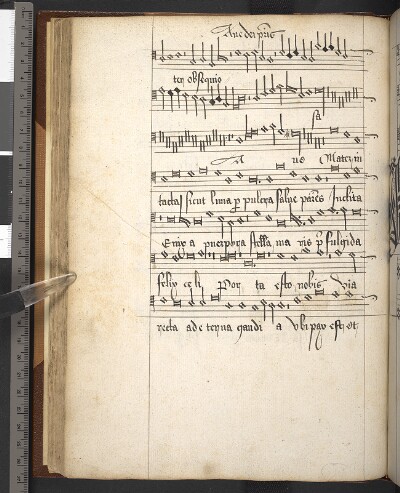 Ave dei
obsequio
ue Mater in
tacta sicut luna p pulcra salve parens Inclita
Enix a puerpera stella ma ris p fulgida
felix celi Por ta esto nobis via
recta ad eterna gaudi a Ubi pax est et